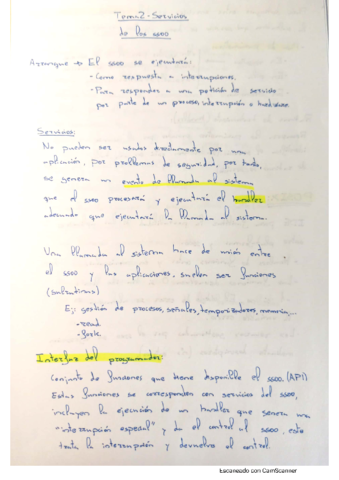 Tema 2 - Servicios
de los ssoo
Arranque → El ssoo se ejecutará:
- Como respuesta a interrupciones.
- Para responder a una petición de servicio
por parte de un proceso, interrupción o hardware
Servicios:
No pueden ser usados directamente por una
aplicación, por problemas de seguridad, por tanto,
se genera un evento de llamada al sistema
que el ssoo procesará y ejecutará el handler
adecuado que ejecutará la llamada al sistema.
Una llamada al sistema hace de unión entre
el ssoo y las aplicaciones, suelen ser funciones
(subrutinas)
Ej: gestión de procesos, señales, temporizadores, memoria,
- read
- fork
Interfaz del programador:
Conjunto de funciones que tiene disponible el ssoo. (API)
Estas funciones se corresponden con servicios del ssoo,
incluyen la ejecución de un handler que genera una
"interrupción especial" y da el control al ssoo, este
trata la interrupción y devuelve el control.
Escaneado con CamScanner